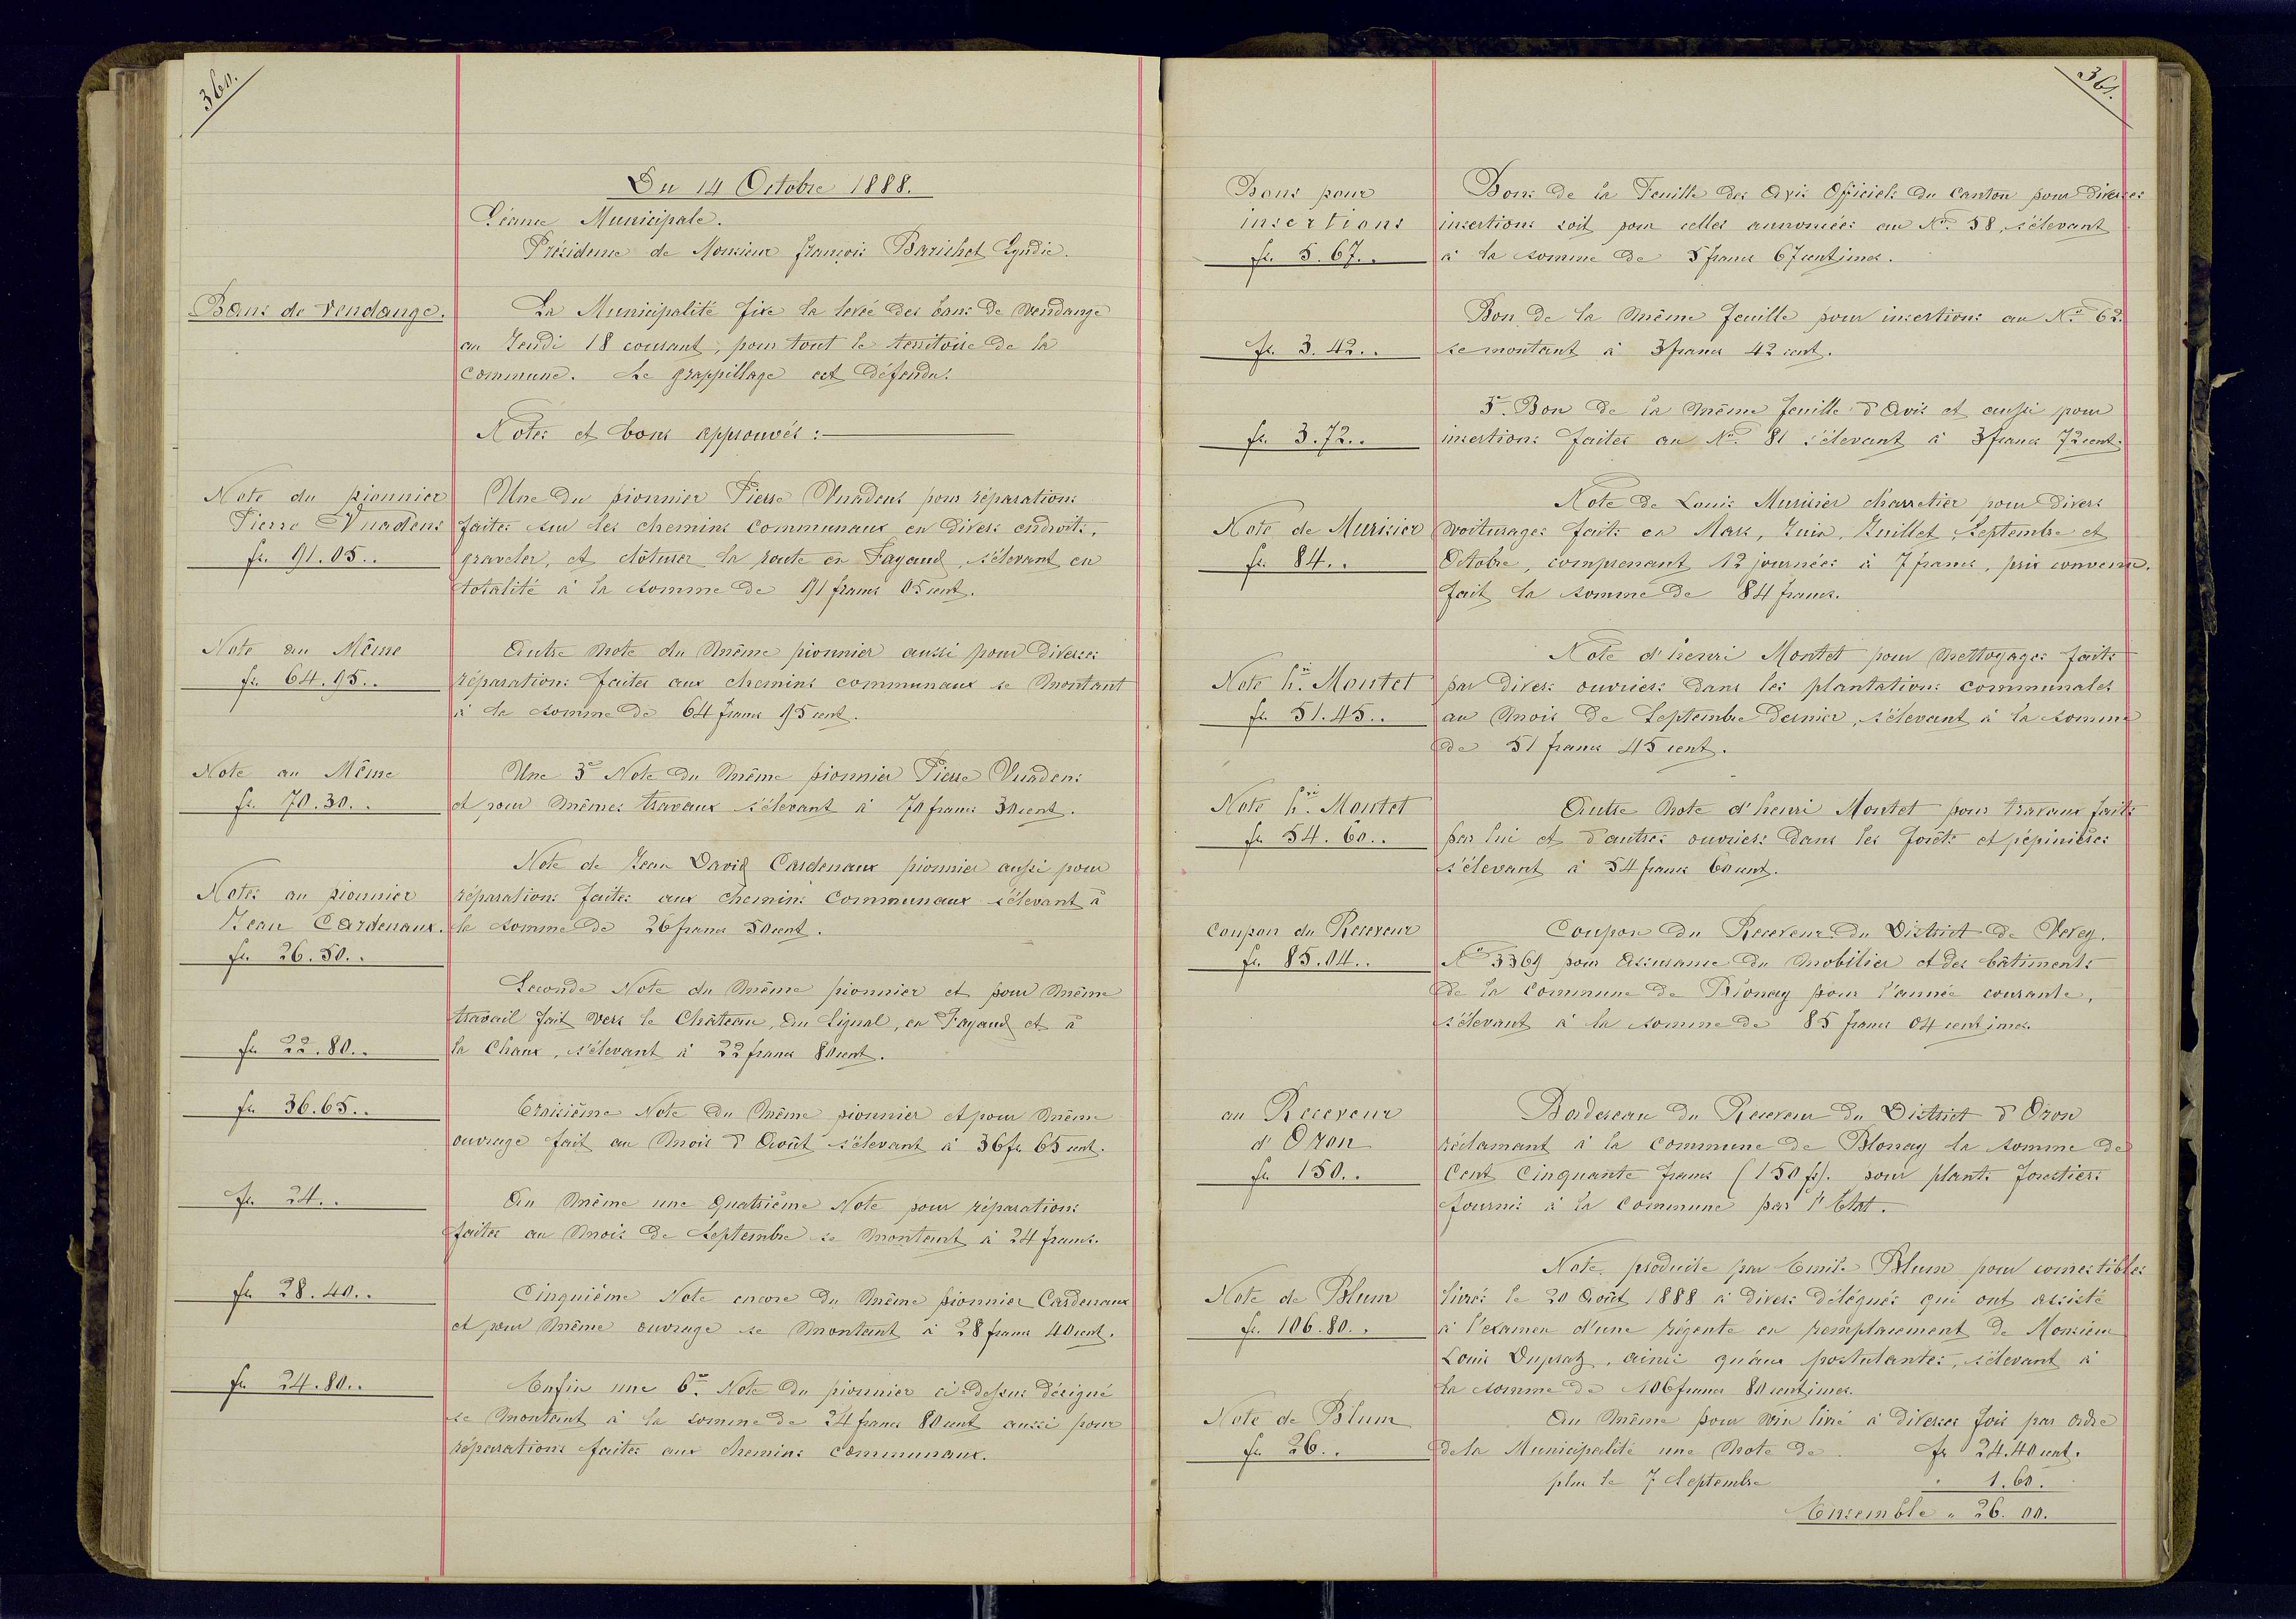 360.
Du 14 Octobre 1888.
Séance Municipale.
Présidence de Monsieur François Barichet Syndic.
Bans de Vendange.
La Municipalité fixe la levée des bans de vendange
au Jeudi 18 courant, pour tout le territoire de la
commune. Le grappillage est défendu.
Notes et bons approuvés :
Note du pionnier
Pierre Vuadens
fr. 91.05..
Une du pionnier Pierre Vuadens pour réparations
faites sur les chemins communaux en divers endroits,
graveler, et clôturer la route en Fayaud, s'élevant en
totalité à la somme de 91 francs 05 cent.
Note au Même
fr. 64.95..
Autre note du même pionnier aussi pour diverses
réparations faites aux chemins communaux se montant
à la somme de 64 francs 95 cent.
Note au Même
fr. 70.30..
Une 3e Note du même pionnier Pierre Vuadens
et pour mêmes travaux s'élevant à 70 francs 30 cent.
Notes au pionnier
Jean Cardenaux.
fr. 26.50..
Note de Jean David Cardenaux pionnier aussi pour
réparations faites aux chemins communaux s'élevant à
la somme de 26 francs 50 cent.
fr. 22.80..
Seconde Note du même pionnier et pour même
travail fait vers le Château, au Signal, en Fayaud et à
la Chaux, s'élevant à 22 francs 80 cent.
fr. 36.65..
Troisième Note du même pionnier et pour même
ouvrage fait au mois d'Août s'élevant à 36 fr. 65 cent.
fr. 24..
Au même une quatrième Note pour réparations
faites au mois de Septembre se montant à 24 francs.
fr. 28.40..
Cinquième Note encore du même pionnier Cardenaux
et pour même ouvrage se montant à 28 francs 40 cent.
fr. 24.80..
Enfin une 6e Note du pionnier ci-dessus désigné
se montant à la somme de 24 francs 80 cent aussi pour
réparations faites aux chemins communaux.
361.
Bons pour
insertions
fr. 5.67..
Bons de la Feuille des Avis Officiels du Canton pour diverses
insertions soit pour celles annoncées au No. 58, s'élevant
à la somme de 5 francs 67 centimes.
fr. 3.42..
Bon de la même feuille pour insertions au No. 62.
se montant à 3 francs 42 cent.
fr. 3.72..
3e. Bon de la même feuille d'Avis et aussi pour
insertions faites au No. 81 s'élevant à 3 francs 72 cent.
Note de Murisier
fr. 84..
Note de Louis Murisier charretier pour divers
voiturages faits en Mars, Juin, Juillet, Septembre et
Octobre, comprenant 12 journées à 7 francs, prix convenu.
fait la somme de 84 francs.
Note hri. Montet
fr. 51.45..
Note d'henri Montet pour nettoyages faits
par divers ouvriers dans les plantations communales
au mois de Septembre dernier, s'élevant à la somme
de 51 francs 45 cent.
Note hri. Montet
fr. 54.60..
Autre note d'henri Montet pour travaux faits
par lui et d'autres ouvriers dans les forêts et pépinières
s'élevant à 54 francs 60 cent.
Coupon du Receveur
fr. 85.04..
Coupon du Receveur du District de Vevey.
No 3369 pour Assurance du mobilier et des bâtiments
de la Commune de Blonay pour l'année courante,
s'élevant à la somme de 85 francs 04 centimes.
au Receveur
d'Oron
fr. 150..
Bordereau du Receveur du District d'Oron
réclamant à la Commune de Blonay la somme de
Cent Cinquante francs (150 fr). pour plants forestiers
fournis à la Commune par l'Etat.
Note de Blum
fr. 106.80..
Note, produite par Emile Blum pour comestibles
livrés le 20 Août 1888 à divers délégués qui ont assisté
à l'examen d'une régente en remplacement de Monsieur
Louis Dupraz, ainsi qu'aux postulantes, s'élevant à
la somme de 106 francs 80 centimes.
Note de Blum
fr. 26..
Au même pour vin livré à diverses fois par ordre
de la Municipalité une note de fr 24.40 cent.
plus le 7 Septembre " 1.60.
Ensemble " 26.00.